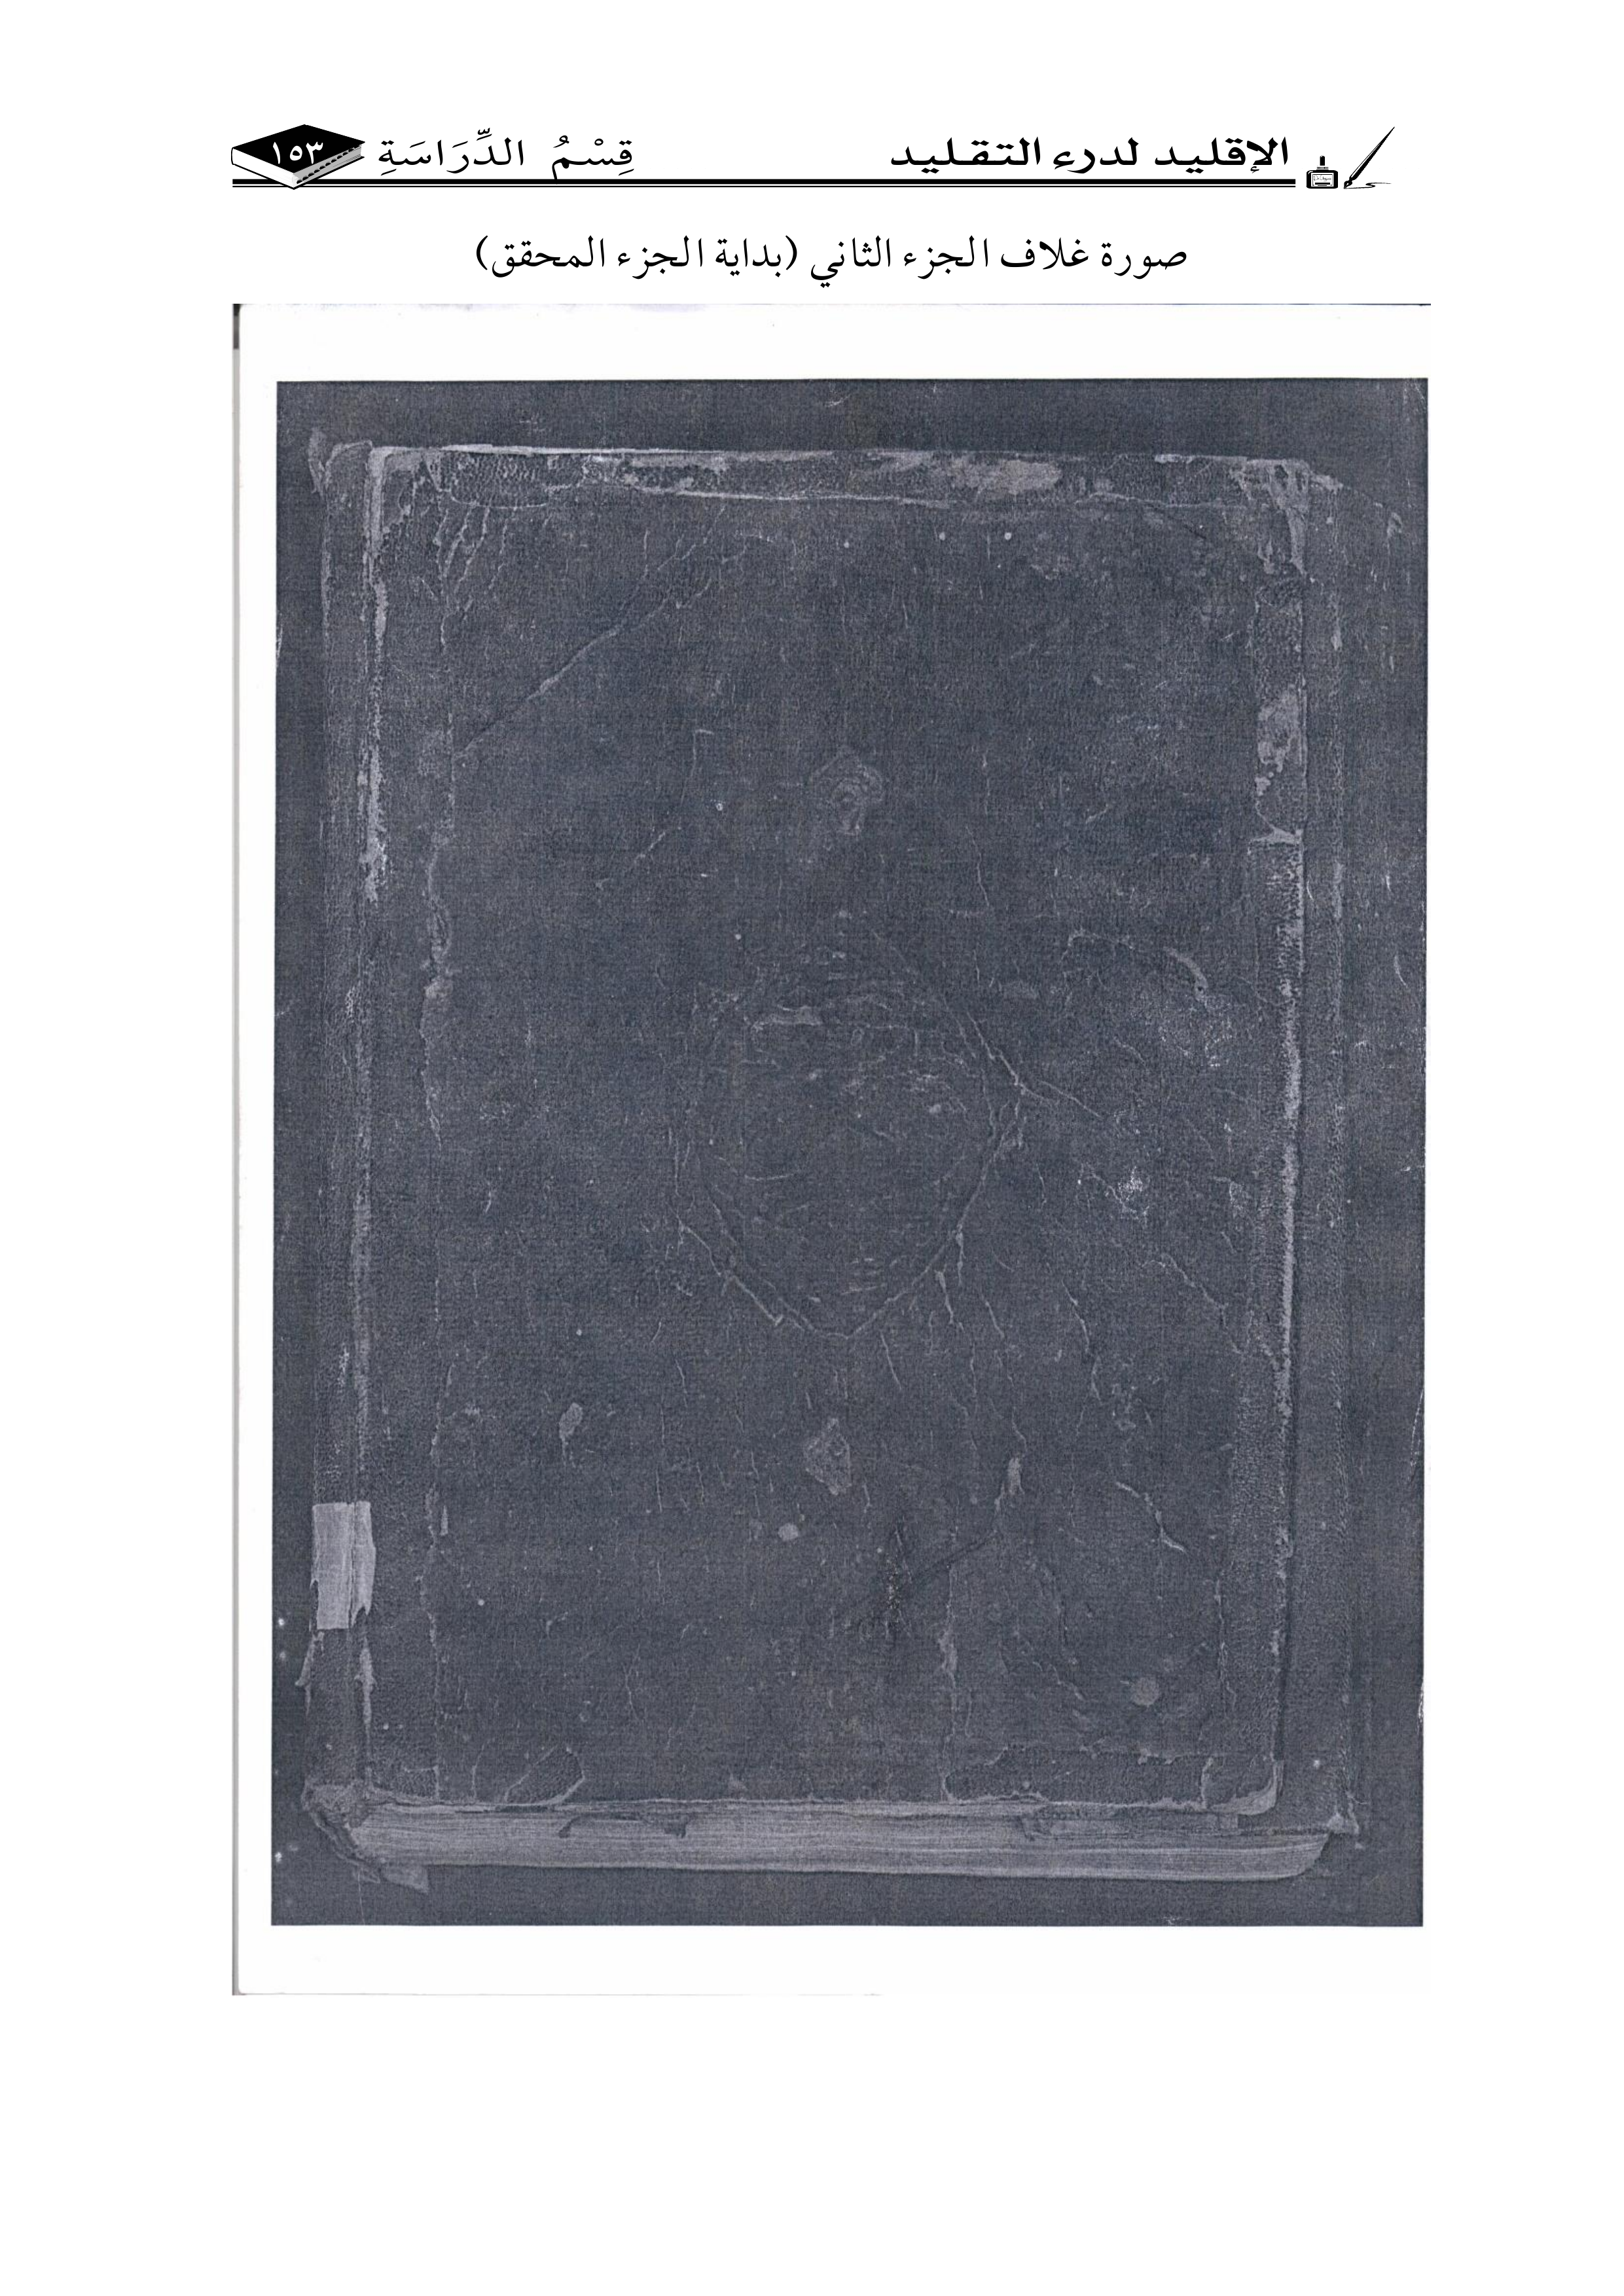 الإقليد لدرء التقليد قِسْمُ الدِّرَاسَةِ ١٥٣
صورة غلاف الجزء الثاني (بداية الجزء المحقق)